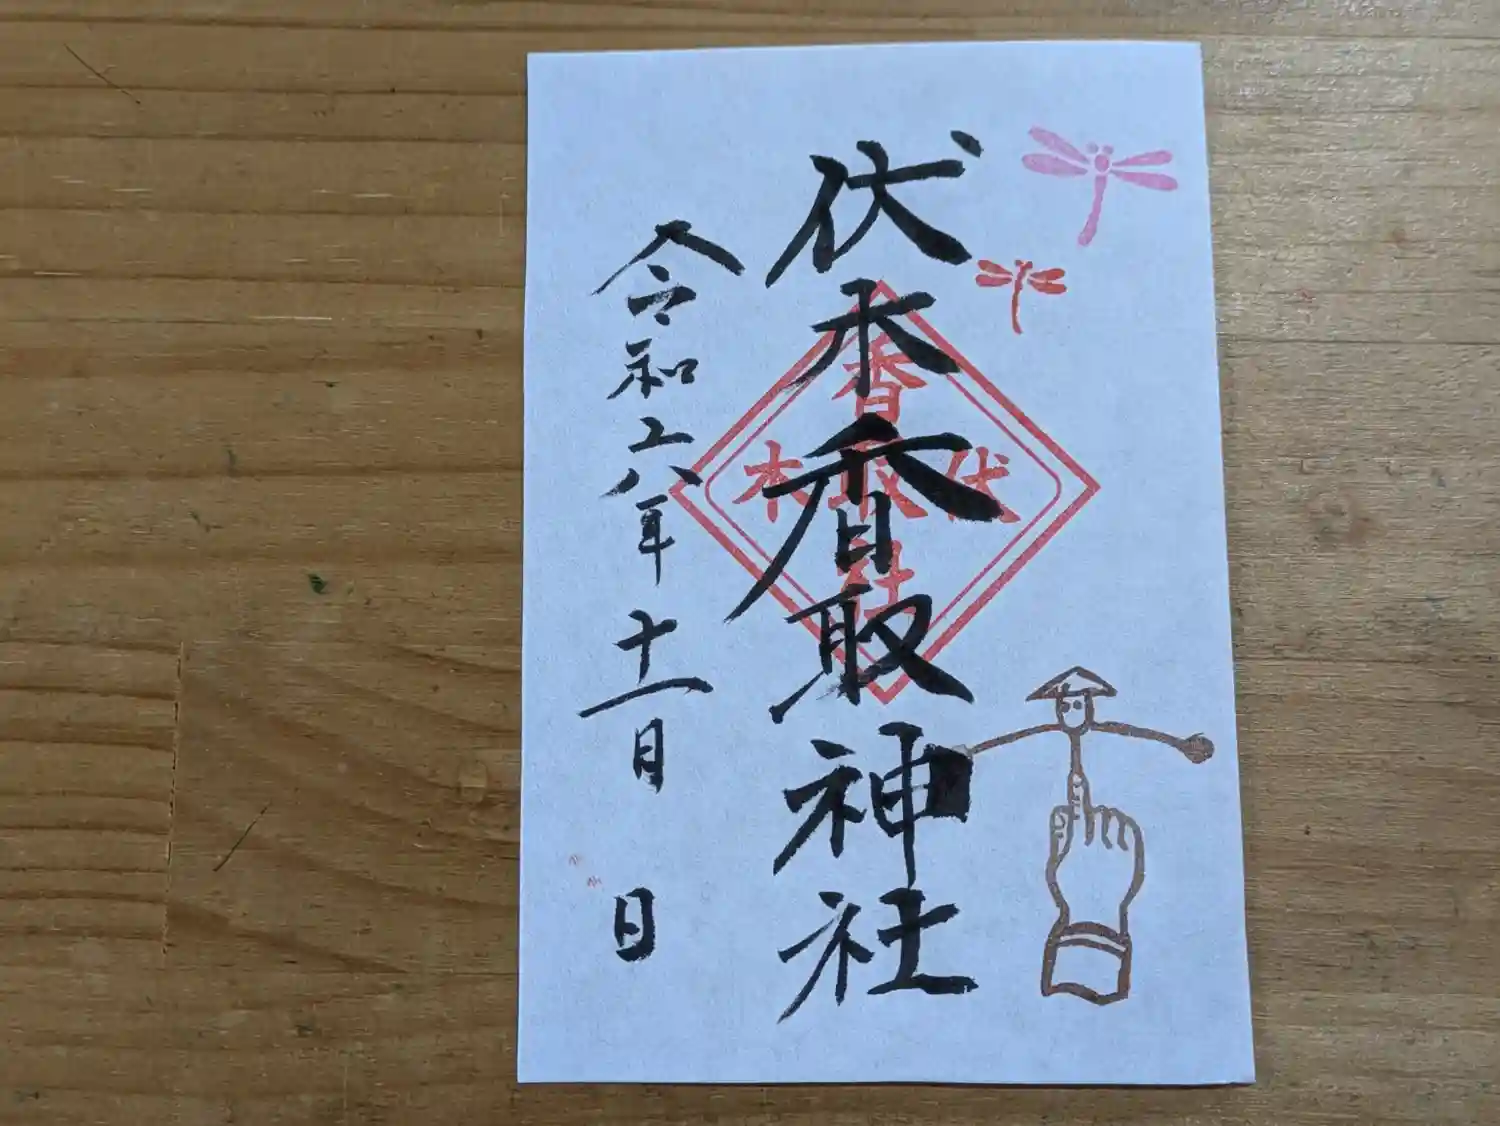 伏木香取神社
香取社
伏木
令和六年十一月 日